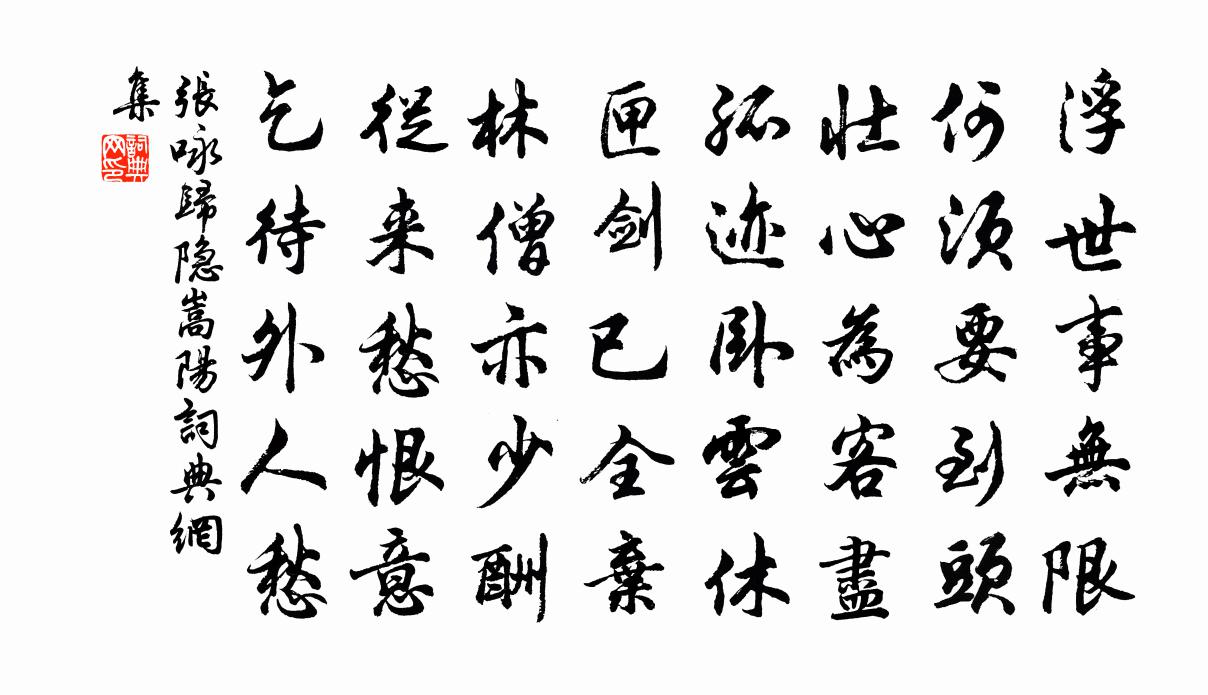 浮世事無限
何須要到頭
壮心為客盡
孤迹卧雲休
匣剑已全棄
林僧亦少酬
從来愁恨意
乞待外人愁
張咏歸隐嵩陽詞典網
集
詞典網印